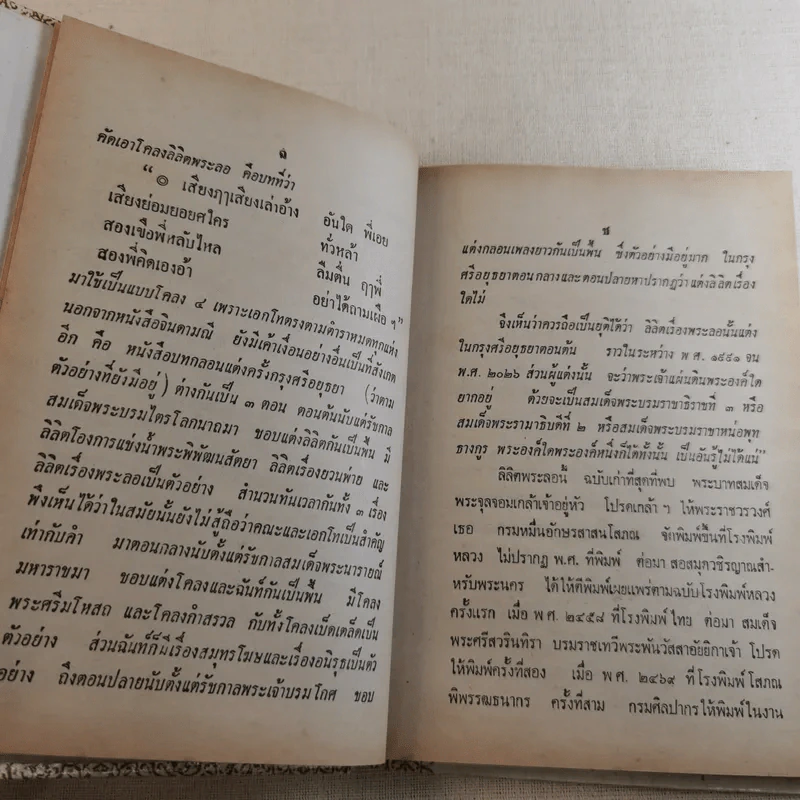 ฉ
คัดเอาโคลงลิลิตพระลอ คือบทที่ว่า
“๏ เสียงฦๅเสียงเล่าอ้าง อันใด พี่เอย
เสียงย่อมยอยศใคร ทั่วหล้า
สองเขือพี่หลับไหล ลืมตื่น ฤๅพี่
สองพี่คิดเองอ้า อย่าได้ถามเผือ ฯ”
มาใช้เป็นแบบโคลง ๔ เพราะเอกโทตรงตามตำราหมดทุกแห่ง
นอกจากหนังสือจินดามณี ยังมีเค้าเงื่อนอย่างอื่นเป็นที่สังเกต
อีก คือ หนังสือบทกลอนแต่งครั้งกรุงศรีอยุธยา (ว่าตาม
ตัวอย่างที่ยังมีอยู่) ต่างกันเป็น ๓ ตอน ตอนต้นนับแต่รัชกาล
สมเด็จพระบรมไตรโลกนาถมา ชอบแต่งลิลิตกันเป็นพื้น มี
ลิลิตโองการแช่งน้ำพระพิพัฒน์สัตยา ลิลิตเรื่องยวนพ่าย และ
ลิลิตเรื่องพระลอเป็นตัวอย่าง สำนวนทันเวลากันทั้ง ๓ เรื่อง
พึงเห็นได้ว่าในสมัยนั้นยังไม่สู้ถือว่าคณะและเอกโทเป็นสำคัญ
เท่ากับคำ มาตอนกลางนับตั้งแต่รัชกาลสมเด็จพระนารายณ์
มหาราชมา ชอบแต่งโคลงและฉันท์กันเป็นพื้น มีโคลง
พระศรีมโหสถ และโคลงกำสรวล กับทั้งโคลงเบ็ดเตล็ดเป็น
ตัวอย่าง ส่วนฉันท์ก็มีเรื่องสมุทรโฆษและเรื่องอนิรุธเป็นตัว
อย่าง ถึงตอนปลายนับตั้งแต่รัชกาลพระเจ้าบรมโกศ ชอบ
ช
แต่งกลอนเพลงยาวกันเป็นพื้น ซึ่งตัวอย่างมีอยู่มาก ในกรุง
ศรีอยุธยาตอนกลางและตอนปลายหาปรากฏว่าแต่งลิลิตเรื่อง
ใดไม่
จึงเห็นว่าควรถือเป็นยุติได้ว่า ลิลิตเรื่องพระลอนั้นแต่ง
ในกรุงศรีอยุธยาตอนต้น ราวในระหว่าง พ.ศ. ๑๙๙๑ จน
พ.ศ. ๒๐๒๖ ส่วนผู้แต่งนั้น จะว่าพระเจ้าแผ่นดินพระองค์ใด
ยากอยู่ ด้วยจะเป็นสมเด็จพระบรมราชาธิราชที่ ๓ หรือ
สมเด็จพระรามาธิบดีที่ ๒ หรือสมเด็จพระบรมราชาหน่อพุท
ธางกูร พระองค์ใดพระองค์หนึ่งก็ได้ทั้งนั้น เป็นอันรู้ไม่ได้แน่”
ลิลิตพระลอนี้ ฉบับเก่าที่สุดที่พบ พระบาทสมเด็จ
พระจุลจอมเกล้าเจ้าอยู่หัว โปรดเกล้า ฯ ให้พระราชวรวงศ์
เธอ กรมหมื่นอักษรสาสนโสภณ จัดพิมพ์ขึ้นที่โรงพิมพ์
หลวง ไม่ปรากฏ พ.ศ. ที่พิมพ์ ต่อมา หอสมุดวชิรญาณสำ-
หรับพระนคร ได้ให้ตีพิมพ์เผยแพร่ตามฉบับโรงพิมพ์หลวง
ครั้งแรก เมื่อ พ.ศ. ๒๔๕๘ ที่โรงพิมพ์ไทย ต่อมา สมเด็จ
พระศรีสวรินทิรา บรมราชเทวีพระพันวัสสาอัยยิกาเจ้า โปรด
ให้พิมพ์ครั้งที่สอง เมื่อ พ.ศ. ๒๔๖๙ ที่โรงพิมพ์โสภณ
พิพรรฒธนากร ครั้งที่สาม กรมศิลปากรให้พิมพ์ในงาน